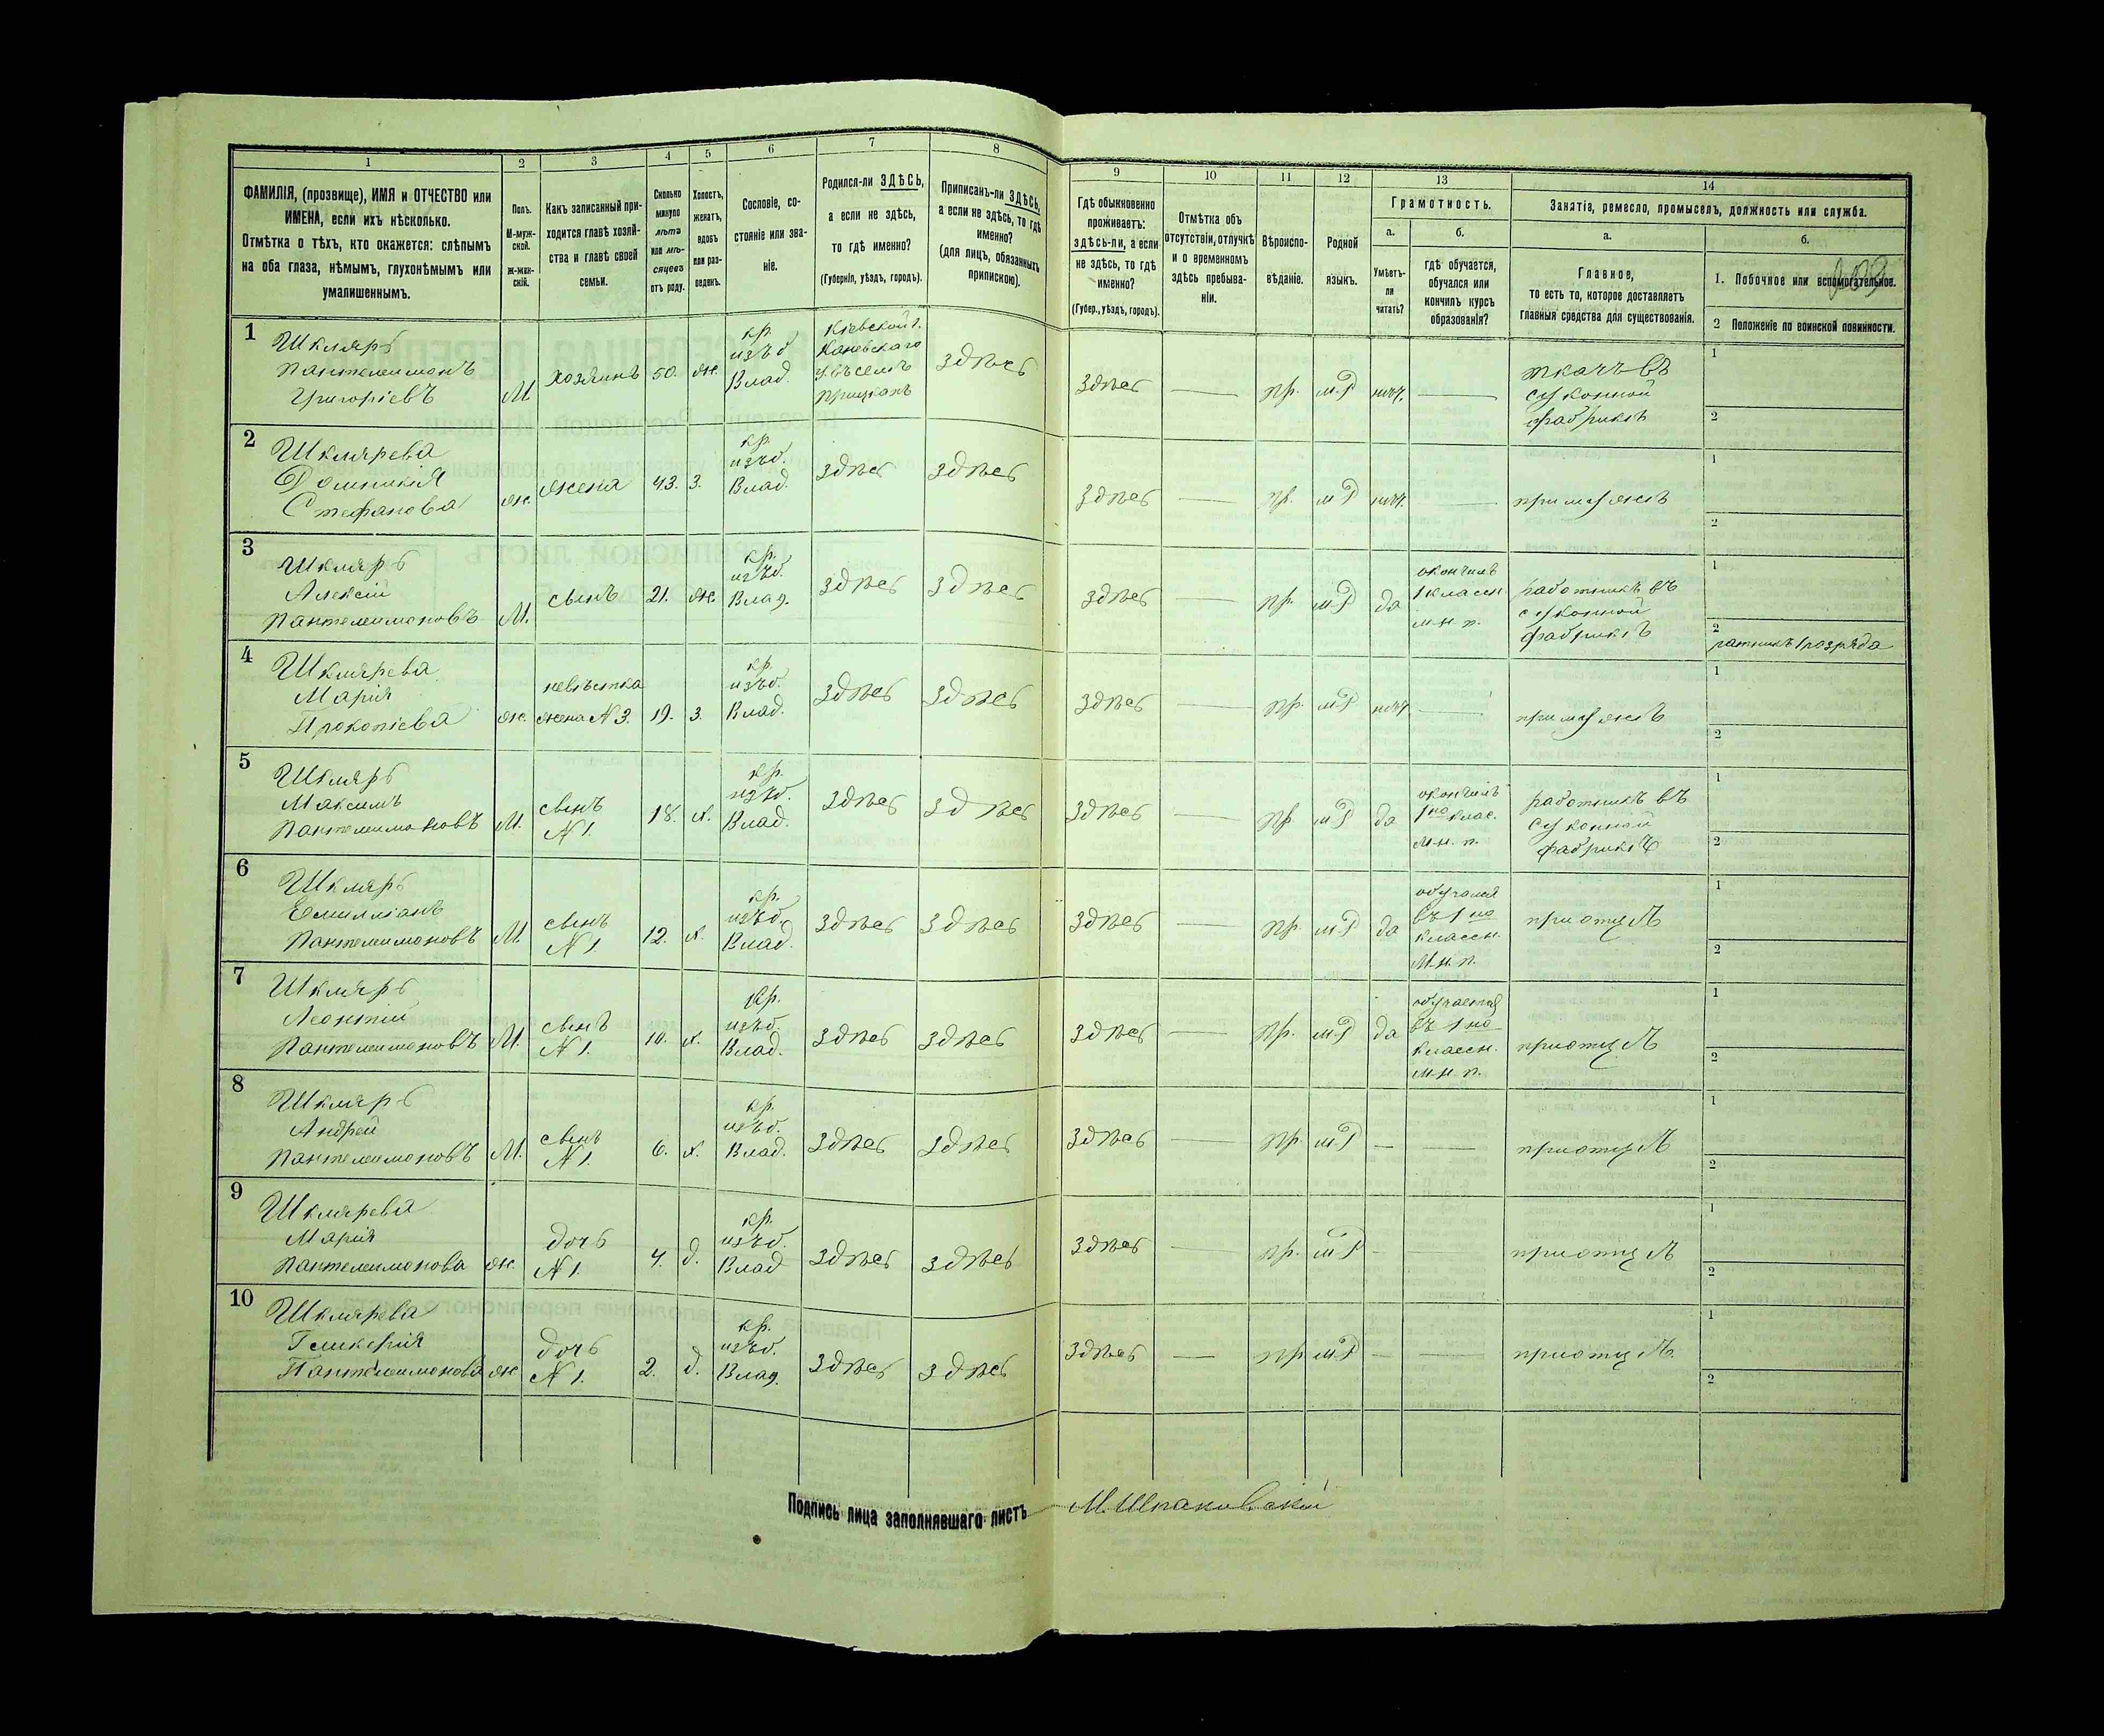 1
2
3
4
5
6
7
8
9
10
11
12
13
14
ФАМИЛІЯ, (прозвище), ИМЯ и ОТЧЕСТВО или
ИМЕНА, если ихъ нѣсколько.
Отмѣтка о тѣхъ, кто окажется: слѣпымъ
на оба глаза, нѣмымъ, глухонѣмымъ или
умалишеннымъ.
Полъ.
М-муж-
ской.
ж-жен-
скій.
Какъ записанный при-
ходится главѣ хозяй-
ства и главѣ своей
семьи.
Сколько
минуло
лѣтъ
или мѣ-
сяцевъ
отъ роду.
Холостъ,
женатъ,
вдовъ
или раз-
веденъ.
Сословіе, со-
стояніе или зва-
ніе.
Родился-ли ЗДѢСЬ,
а если не здѣсь,
то гдѣ именно?
(Губернія, уѣздъ, городъ).
Приписанъ-ли ЗДѢСЬ,
а если не здѣсь, то гдѣ
именно?
(для лицъ, обязанныхъ
припискою).
Гдѣ обыкновенно
проживаетъ:
здѣсь-ли, а если
не здѣсь, то гдѣ
именно?
(Губер., уѣздъ, городъ).
Отмѣтка объ
отсутствіи, отлучкѣ
и о временномъ
здѣсь пребыва-
ніи.
Вѣроиспо-
вѣданіе.
Родной
языкъ.
Грамотность.
а.
Умѣетъ-
ли
читать?
б.
гдѣ обучается,
обучался или
кончилъ курсъ
образованія?
Занятіе, ремесло, промыселъ, должность или служба.
а.
Главное,
то есть то, которое доставляетъ
главныя средства для существованія.
б.
1. Побочное или вспомогательное.
2 Положеніе по воинской повинности.
1
Шкляръ
Пантелеимонъ
Григоріевъ
М.
хозяинъ
50.
ж.
кр.
изъ б
Влад.
Кіевской г.
Каневскаго
у въ селѣ
здѣсь
здѣсь
—
пр.
м-Р
—
ткачъ въ
суконной
фабрикѣ
1
2
2
Шклярева
Домникія
Стефанова
ж.
жена
43.
з.
кр.
изъ б.
Влад.
здѣсь
здѣсь
здѣсь
—
пр.
м Р
—
при мужѣ
1
2
3
Шкляръ
Алексій
Пантелеимоновъ
М.
сынъ
21.
ж.
кр.
изъ б.
Влад.
здѣсь
здѣсь
здѣсь
—
пр.
м-Р
да
окончилъ
1 классн.
м-н. п.
работникъ въ
суконной
фабрикѣ
1
2
ратникъ 1 розряда
4
Шклярева
Марія
Прокопіева
ж.
невѣстка
жена N 3.
19.
з.
кр.
изъ б.
Влад.
здѣсь
здѣсь
здѣсь
—
пр.
м Р
—
при мужѣ
1
2
5
Шкляръ
Максимъ
Пантелеимоновъ
М.
сынъ
N 1.
18.
х.
кр.
изъ б.
Влад.
здѣсь
здѣсь
здѣсь
—
пр
м Р
да
окончилъ
1 но клас.
м-н. п.
работникъ въ
суконной
фабрикѣ
1
2
6
Шкляръ
Емиліанъ
Пантелеимоновъ
М.
сынъ
N 1
12.
х.
кр.
изъ б.
Влад.
здѣсь
здѣсь
здѣсь
—
пр.
м-Р
да
обучался
въ 1 но
классн.
М.н. п.
при отцѣ
1
2
7
Шкляръ
Леонтій
Пантелеимоновъ
М.
сынъ
N 1.
10.
х.
кр.
изъ б.
Влад.
здѣсь
здѣсь
здѣсь
—
пр.
м-Р
да
обучается
въ 1 но
классн.
м-н. п.
при отцѣ
1
2
8
Шкляръ
Андрей
Пантелеимоновъ
М.
сынъ
N 1.
6.
х.
кр.
изъ б.
Влад.
здѣсь
здѣсь
здѣсь
—
пр.
м Р
—
—
при отцѣ
1
2
9
Шклярева
Марія
Пантелеимонова
ж.
дочь
N 1.
4.
д.
кр.
изъ б.
Влад
здѣсь
здѣсь
здѣсь
—
пр.
м Р
-
при отцѣ
1
2
10
Шклярева
Гликерія
Пантелеимонова
ж.
дочь
N 1.
2.
д.
кр.
изъ б.
Влад.
здѣсь
здѣсь
здѣсь
—
пр
м Р
—
—
при отцѣ.
1
2
Подпись лица заполнявшаго листъ
М. Шпаковскій